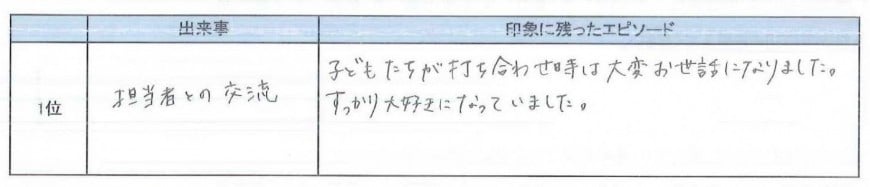 出来事
印象に残ったエピソード
1位
担当者との交流
子どもたちが打ち合わせ時は大変お世話になりました。
すっかり大好きになっていました。